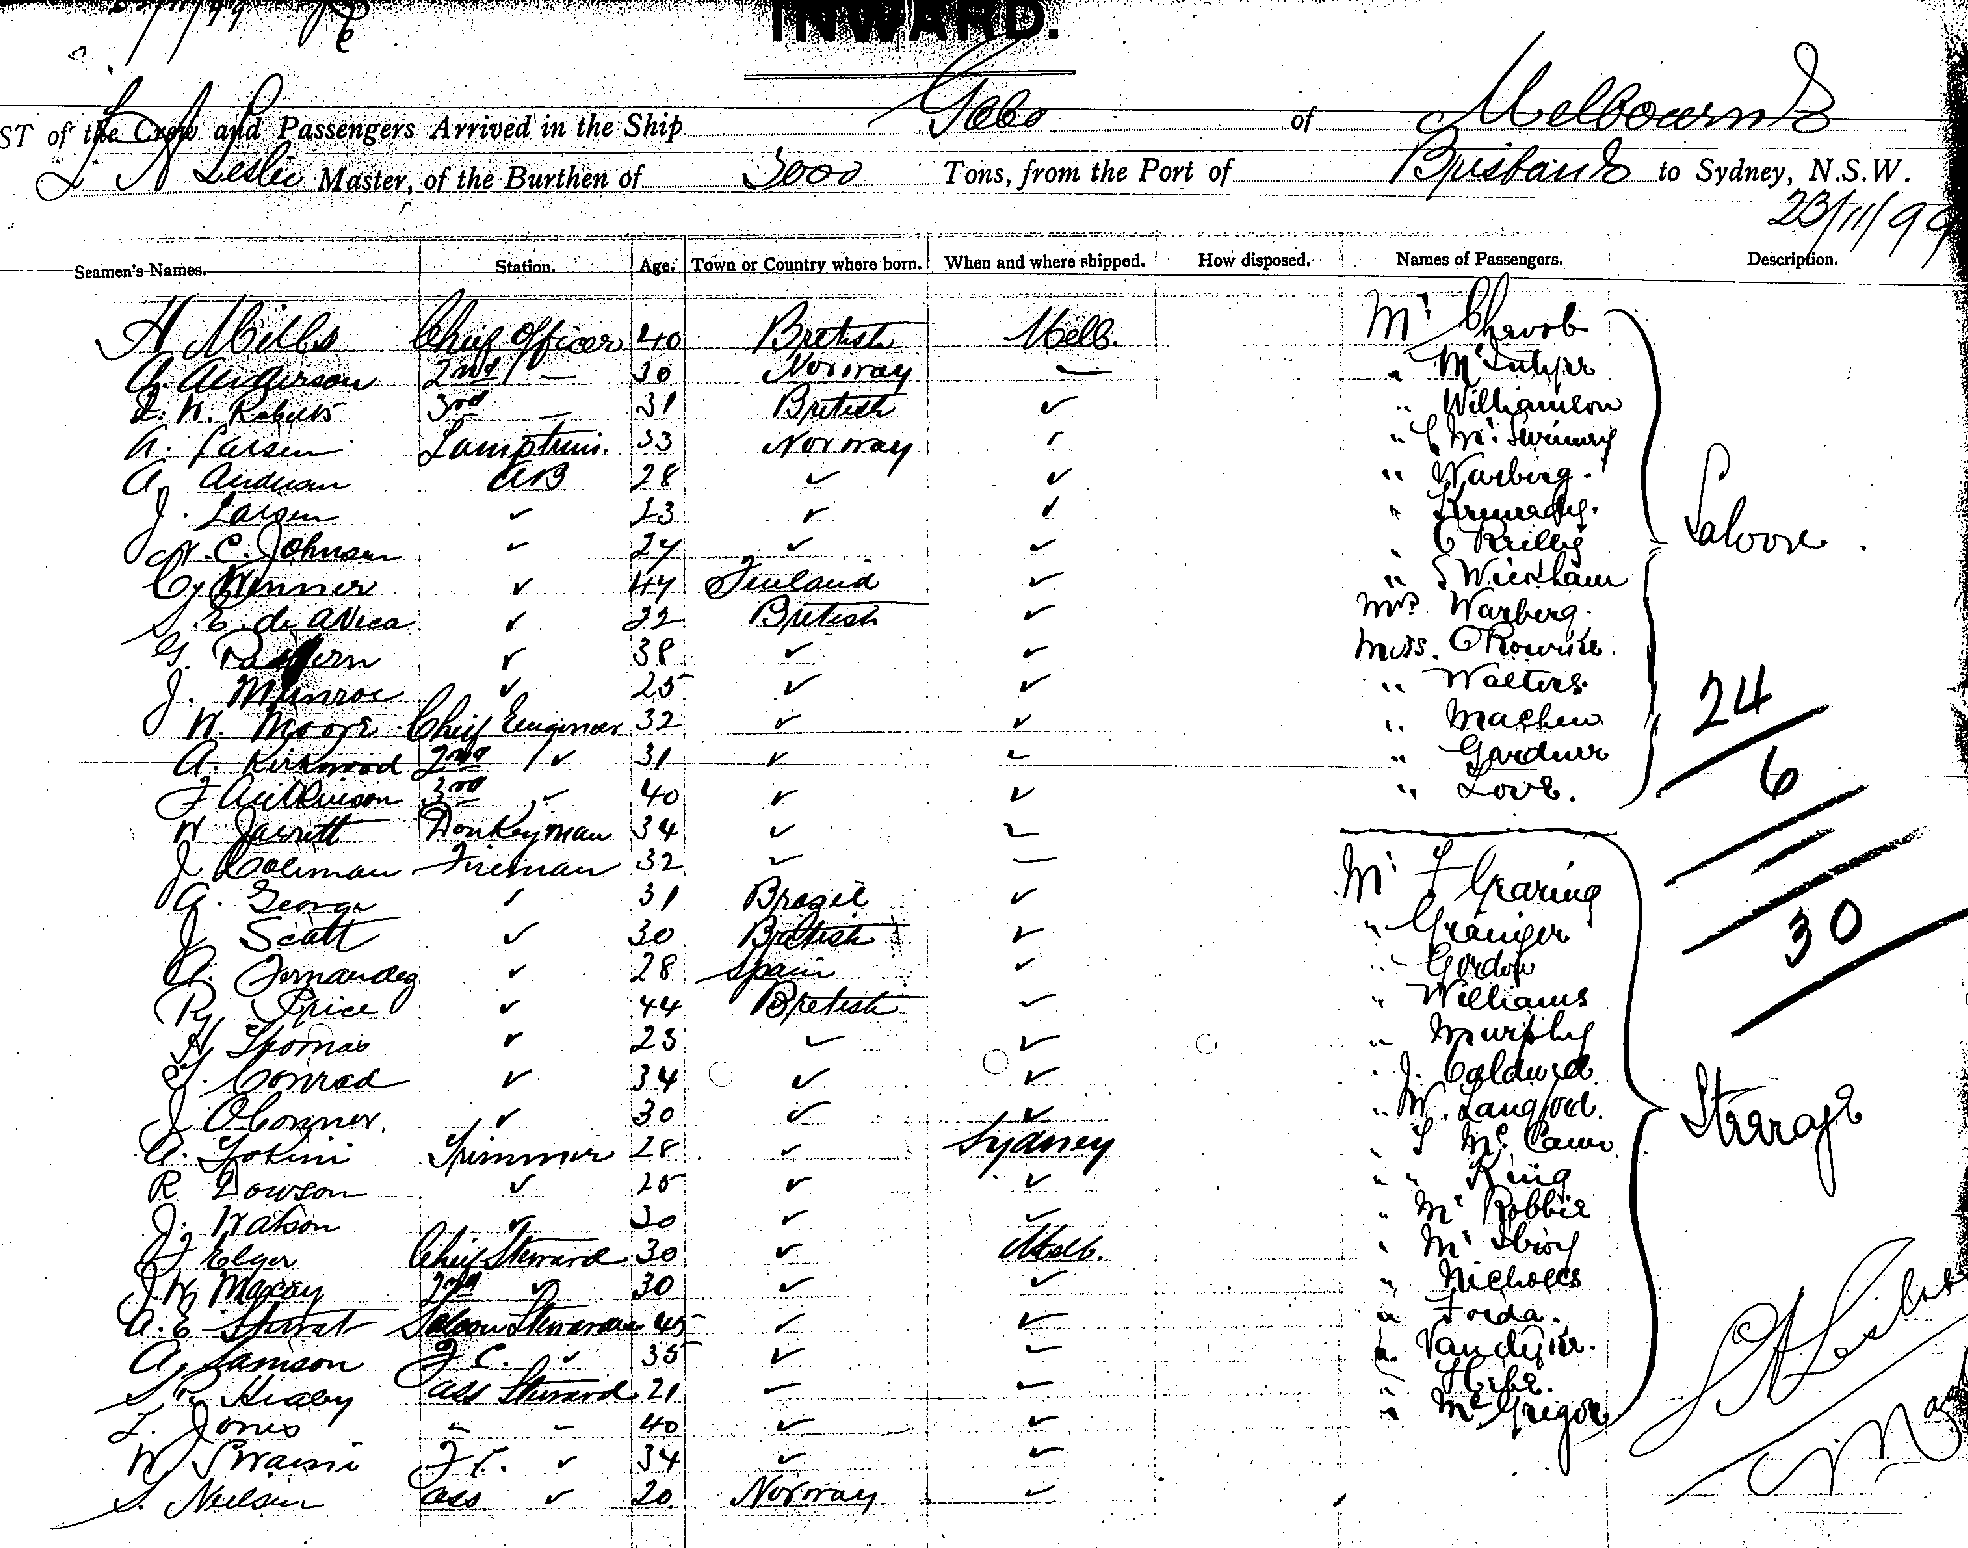 INWARD.
ST of the Crew and Passengers Arrived in the Ship Gabo of Melbourne
Leslie Master, of the Burthen of 3000 Tons, from the Port of Brisbane to Sydney, N.S.W.
23/11/99
Seamen's Names. Station. Age. Town or Country where born. When and where shipped. How disposed. Names of Passengers. Description.
H Mills Chief Officer 40 British Melb. Mr
A Anderson 2nd — 30 Norway — "
N. Roberts 3rd — 31 British ✓ " Williamson
A. Larsen Lamptrim. 33 Norway ✓ "
A. AB 28 ✓ ✓ " Warberg.
J. Larsen ✓ 23 ✓ ✓ "
C. Johnsen ✓ 27 ✓ ✓ " O Reilly
Winner ✓ 47 Finland ✓ "
✓ 32 British ✓ Mrs Warberg.
G. ✓ 38 ✓ ✓ Miss. O'Rourke.
J. Munroe ✓ 25 ✓ ✓ " Walters
W. Moore Chief Engineer 32 ✓ ✓ " Mathew
A. Kirkwood 2nd ✓ 31 ✓ ✓ " Gardner
F Aitkinson 3rd ✓ 40 ✓ ✓ " Love.
Saloon
24
6
30
W Jarrett Donkeyman 34 ✓ ✓
J Coleman Fireman 32 ✓ — Mr F Gearing
A. George ✓ 31 Brazil ✓ " Grainger
J Scott ✓ 30 British ✓ " Gordon
A. Fernandez ✓ 28 Spain ✓ " Williams
Ry Price ✓ 44 British ✓ " Murphy
H Thomas ✓ 23 ✓ ✓ " J. Caldwell
Conrad ✓ 34 ✓ ✓ " W. Langford.
J OConner. ✓ 30 ✓ ✓ "
A. Trimmer 28 ✓ Sydney " " King
R Dowson ✓ 25 ✓ ✓ " Mc Robbie
J. Watson ✓ 30 ✓ ✓ "
F Elger Chief Steward 30 ✓ Melb. " Nicholls
J. W. Mackay 2nd ✓ 30 ✓ ✓ " Forda.
A. E Stewart Saloon 45 ✓ ✓ " Vandyke.
A. Samson F C. ✓ 35 ✓ ✓ "
S. R. Healey ass Steward 21 ✓ ✓ " McGregor
Steerage
Jones " " 40 ✓ ✓
W Swain F C. ✓ 34 ✓ ✓
S. Neilsen ass ✓ 20 Norway ✓
Leslie